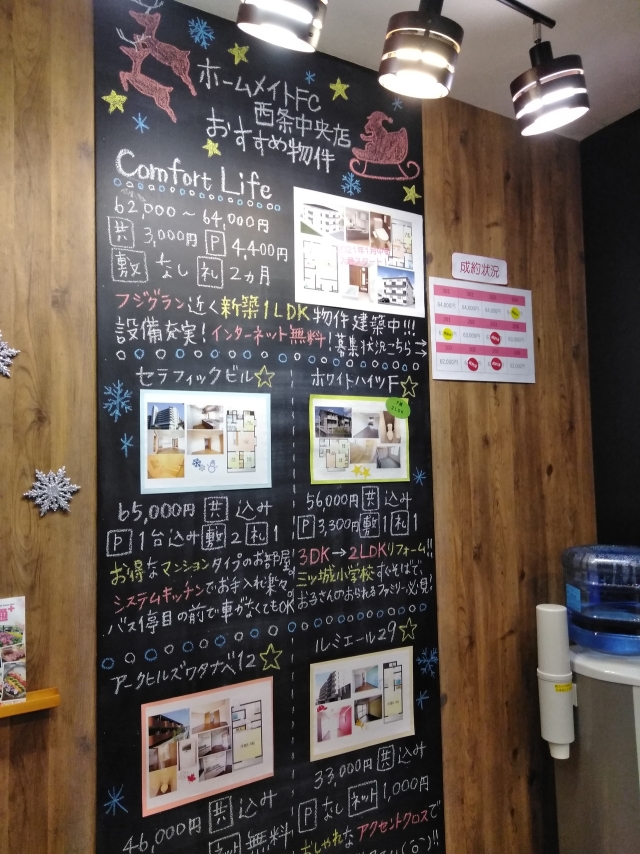 ホームメイトFC
西条中央店
おすすめ物件
Comfort Life
62,000〜64,000円
共 3,000円 P 4,400円
敷 なし 礼 2ヵ月
フジグラン近く新築1LDK物件建築中!!!
設備充実!インターネット無料!募集状況こちら→
成約状況
セラフィックビル☆
65,000円 共 込み
P 1台込み 敷 2 礼 1
お得なマンションタイプのお部屋!
システムキッチンでお手入れ楽々♪
バス停目の前で車がなくてもOK
ホワイトハイツF☆
56,000円 共 込み
P 3,300円 敷 1 礼 1
3DK→2LDKリフォーム!!
三ッ城小学校すぐそばで、
お子さんのおられるファミリー必見!
アークヒルズワタナベ12☆
46,000円 共 込み
ネット 無料
ルミエール29☆
33,000円 共 込み
P なし ネット 1,000円
おしゃれなアクセントクロスで